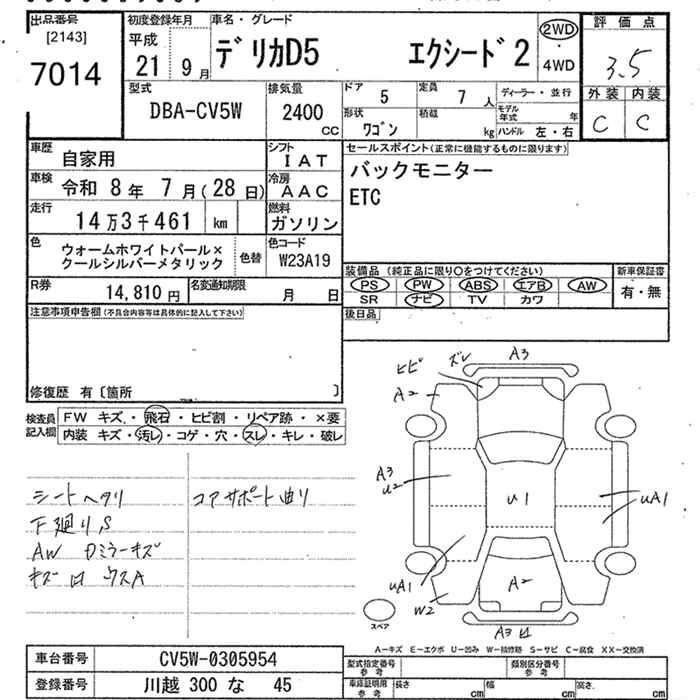 出品番号
[2143]
7014
初度登録年月
平成
21 9月
車名・グレード
デリカD5 エクシード2
2WD
・
4WD
評価点
3.5
外装 内装
C C
型式
DBA-CV5W
排気量
2400
CC
ドア
5
定員
7人
形状
ワゴン
積載
kg
ディーラー・並行
モデル年式 年
ハンドル 左・右
車歴
自家用
シフト
IAT
車検
令和 8年 7月(28日)
冷房
AAC
走行
14万3千461 km
燃料
ガソリン
色
ウォームホワイトパール×
クールシルバーメタリック
色替
色コード
W23A19
R券
14,810円
名変通知期限
月 日
セールスポイント(正常に機能するものに限ります)
バックモニター
ETC
装備品(純正品に限り○をつけてください)
PS PW ABS エアB AW
SR ナビ TV カワ
新車保証書
有・無
後日品
注意事項申告欄(不具合内容等は具体的に記入して下さい)
修復歴 有〔箇所 〕
検査員
記入欄
FW キズ・飛石・ヒビ割・リペア跡・×要
内装 キズ・汚レ・コゲ・穴・スレ・キレ・破レ
シートヘタリ
下廻りS
AW Dミラーキズ
コアサポート曲り
ヒビ ズレ A3
A2
A3
U2
U1
UA1
UA1
W2
A2
A3
スペア
A-キズ E-エクボ U-凹み W-補修跡 S-サビ C-腐食 XX-交換済
車台番号
CV5W-0305954
登録番号
川越 300 な 45
型式指定番号
参考
類別区分番号
参考
車庫証明用
参考
長さ cm
幅 cm
高さ cm